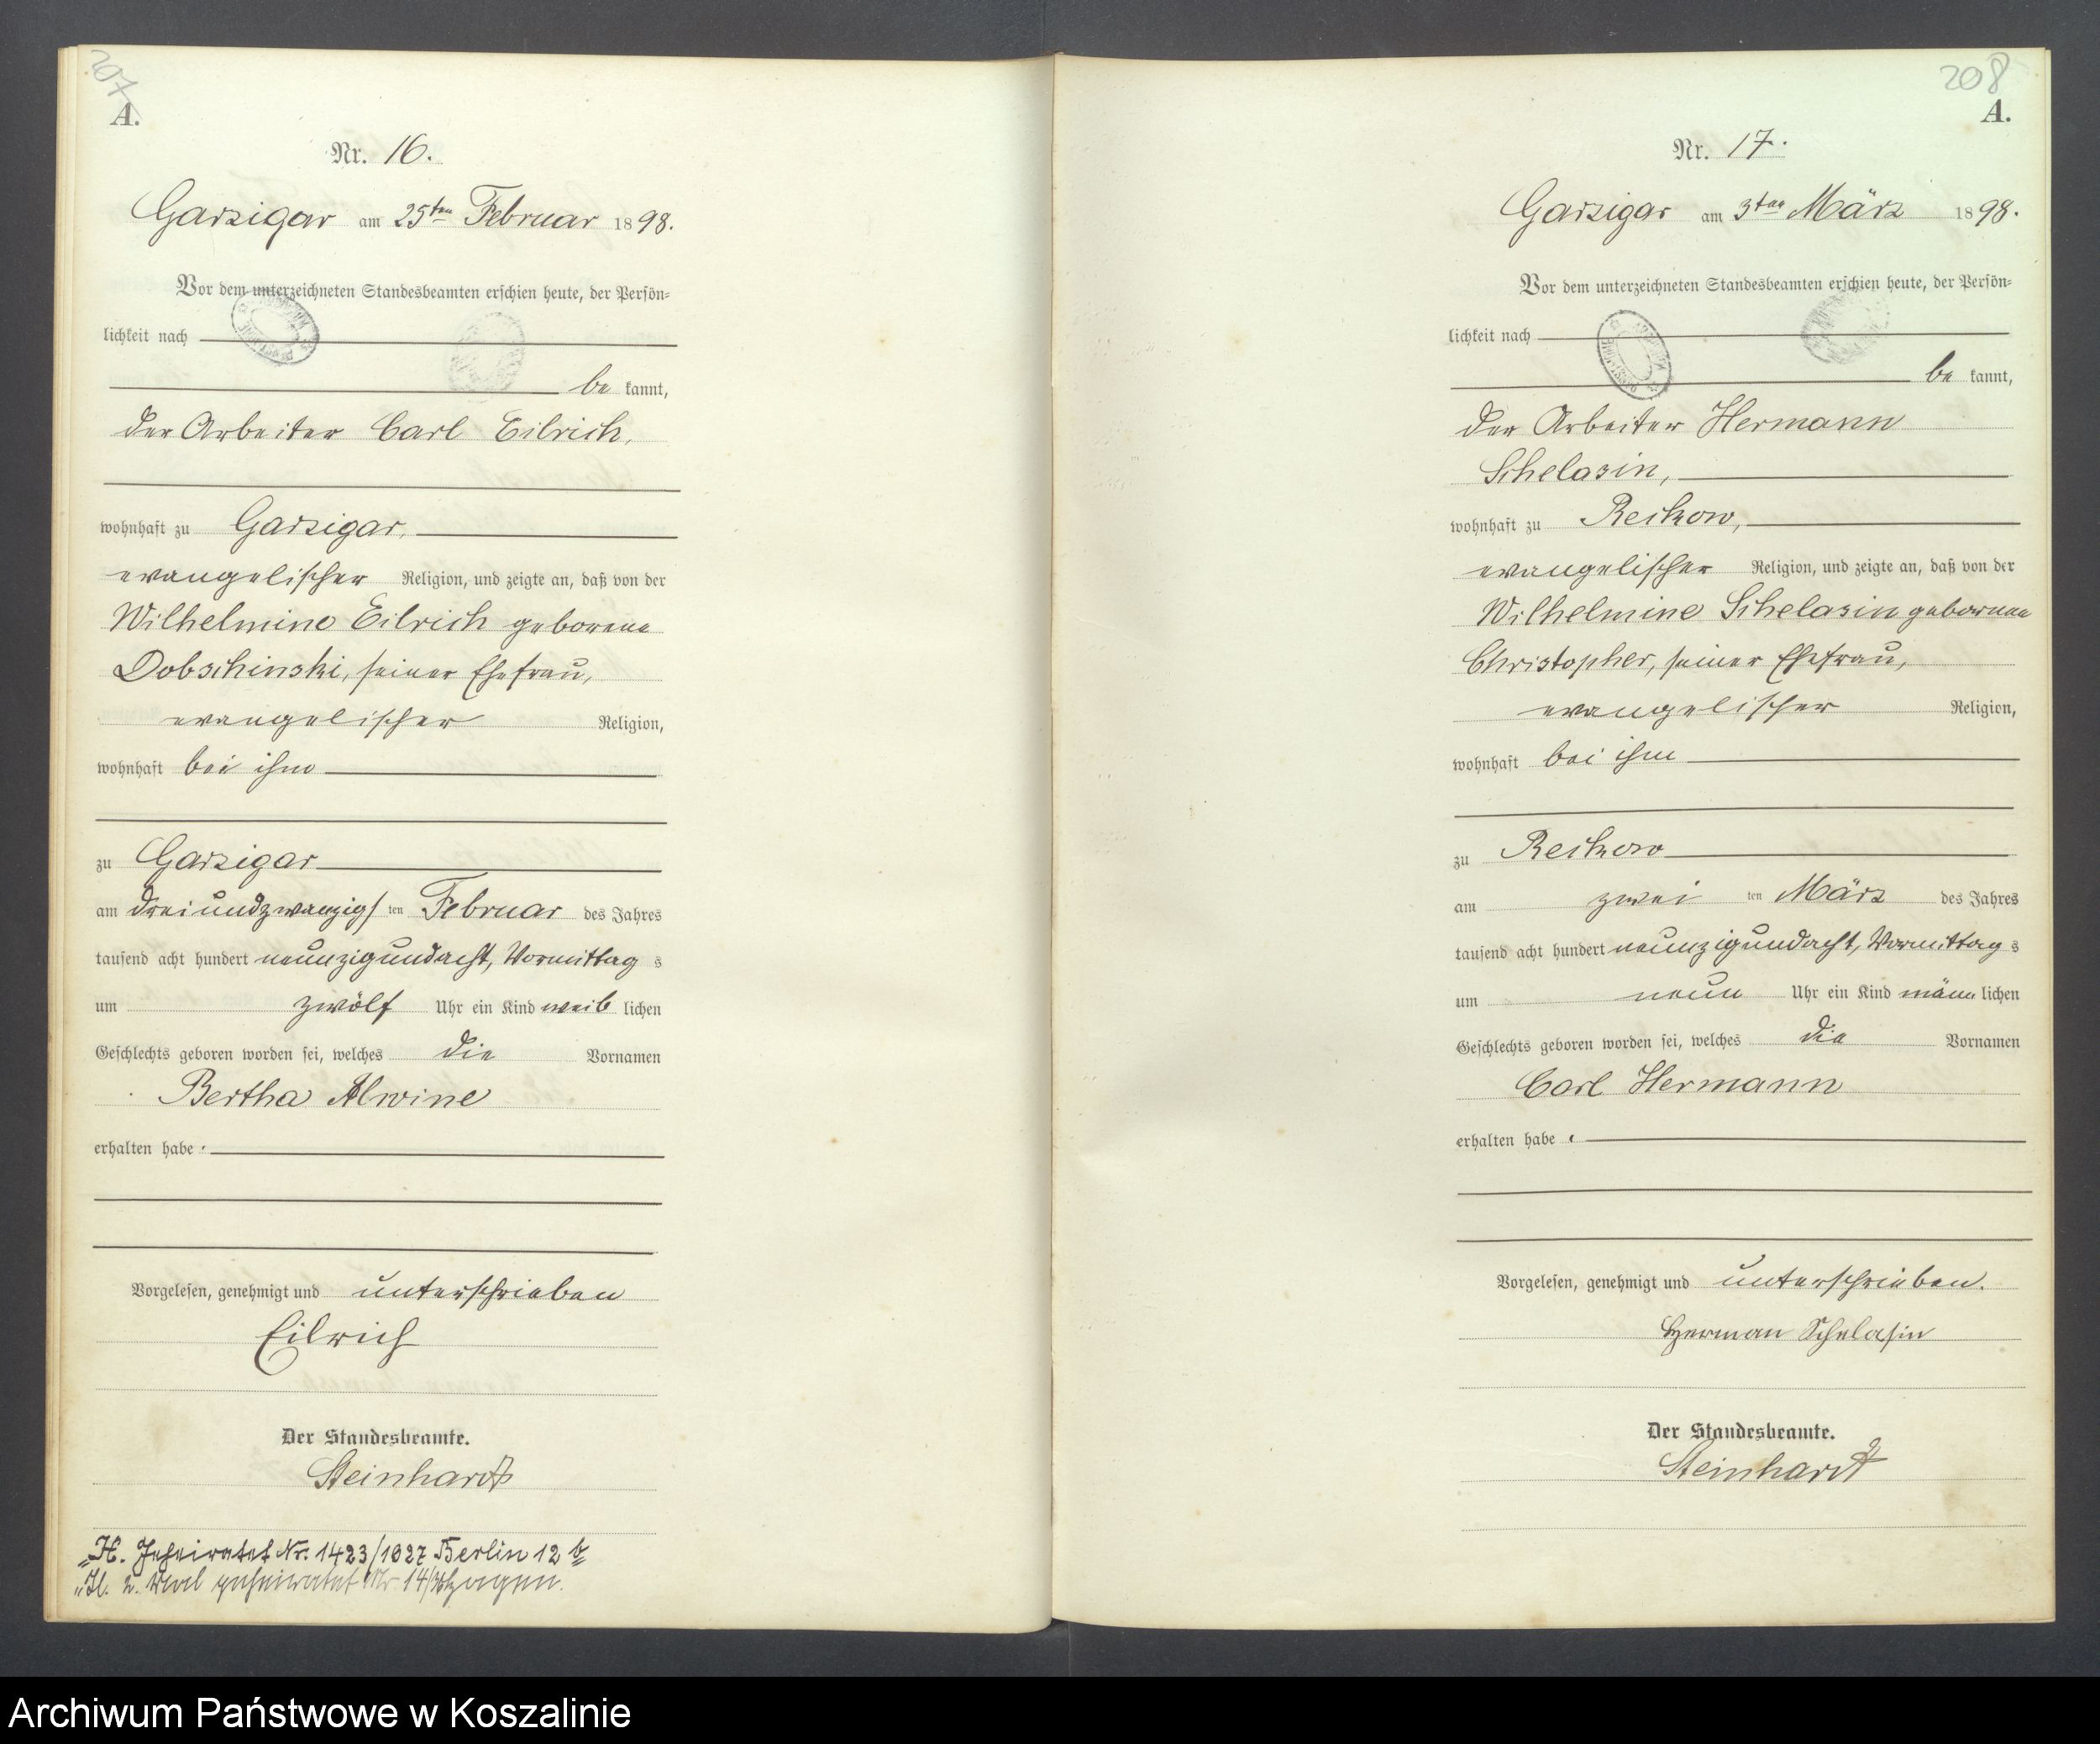 207
A.
Nr. 16.
Garzigar am 25ten Februar 1898.
Vor dem unterzeichneten Standesbeamten erschien heute, der Persön-
lichkeit nach
be kannt,
der Arbeiter Carl Eilrich,
wohnhaft zu Garzigar,
evangelischer Religion, und zeigte an, daß von der
Wilhelmine Eilrich geborene
Dobschinski, seiner Ehefrau,
evangelischer Religion,
wohnhaft bei ihm
zu Garzigar
am dreiundzwanzigsten Februar des Jahres
tausend acht hundert neunzigundacht, Vormittags
um zwölf Uhr ein Kind weiblichen
Geschlechts geboren worden sei, welches die Vornamen
Bertha Alwine
erhalten habe.
Vorgelesen, genehmigt und unterschrieben
Eilrich
Der Standesbeamte.
Steinhardt
„H. Geheiratet Nr. 1423/1927 Berlin 12 b
„II. 2. Mal geheiratet Nr. 14/
208
A.
Nr. 17.
Garzigar am 3ten März 1898.
Vor dem unterzeichneten Standesbeamten erschien heute, der Persön-
lichkeit nach
be kannt,
der Arbeiter Hermann
Schelasin,
wohnhaft zu Reckow,
evangelischer Religion, und zeigte an, daß von der
Wilhelmine Schelasin geborene
Christopher, seiner Ehefrau,
evangelischer Religion,
wohnhaft bei ihm
zu Reckow
am zwei ten März des Jahres
tausend acht hundert neunzigundacht, Vormittags
um neun Uhr ein Kind männlichen
Geschlechts geboren worden sei, welches die Vornamen
Carl Hermann
erhalten habe.
Vorgelesen, genehmigt und unterschrieben.
Herman Schelasin
Der Standesbeamte.
Steinhardt
Archiwum Państwowe w Koszalinie